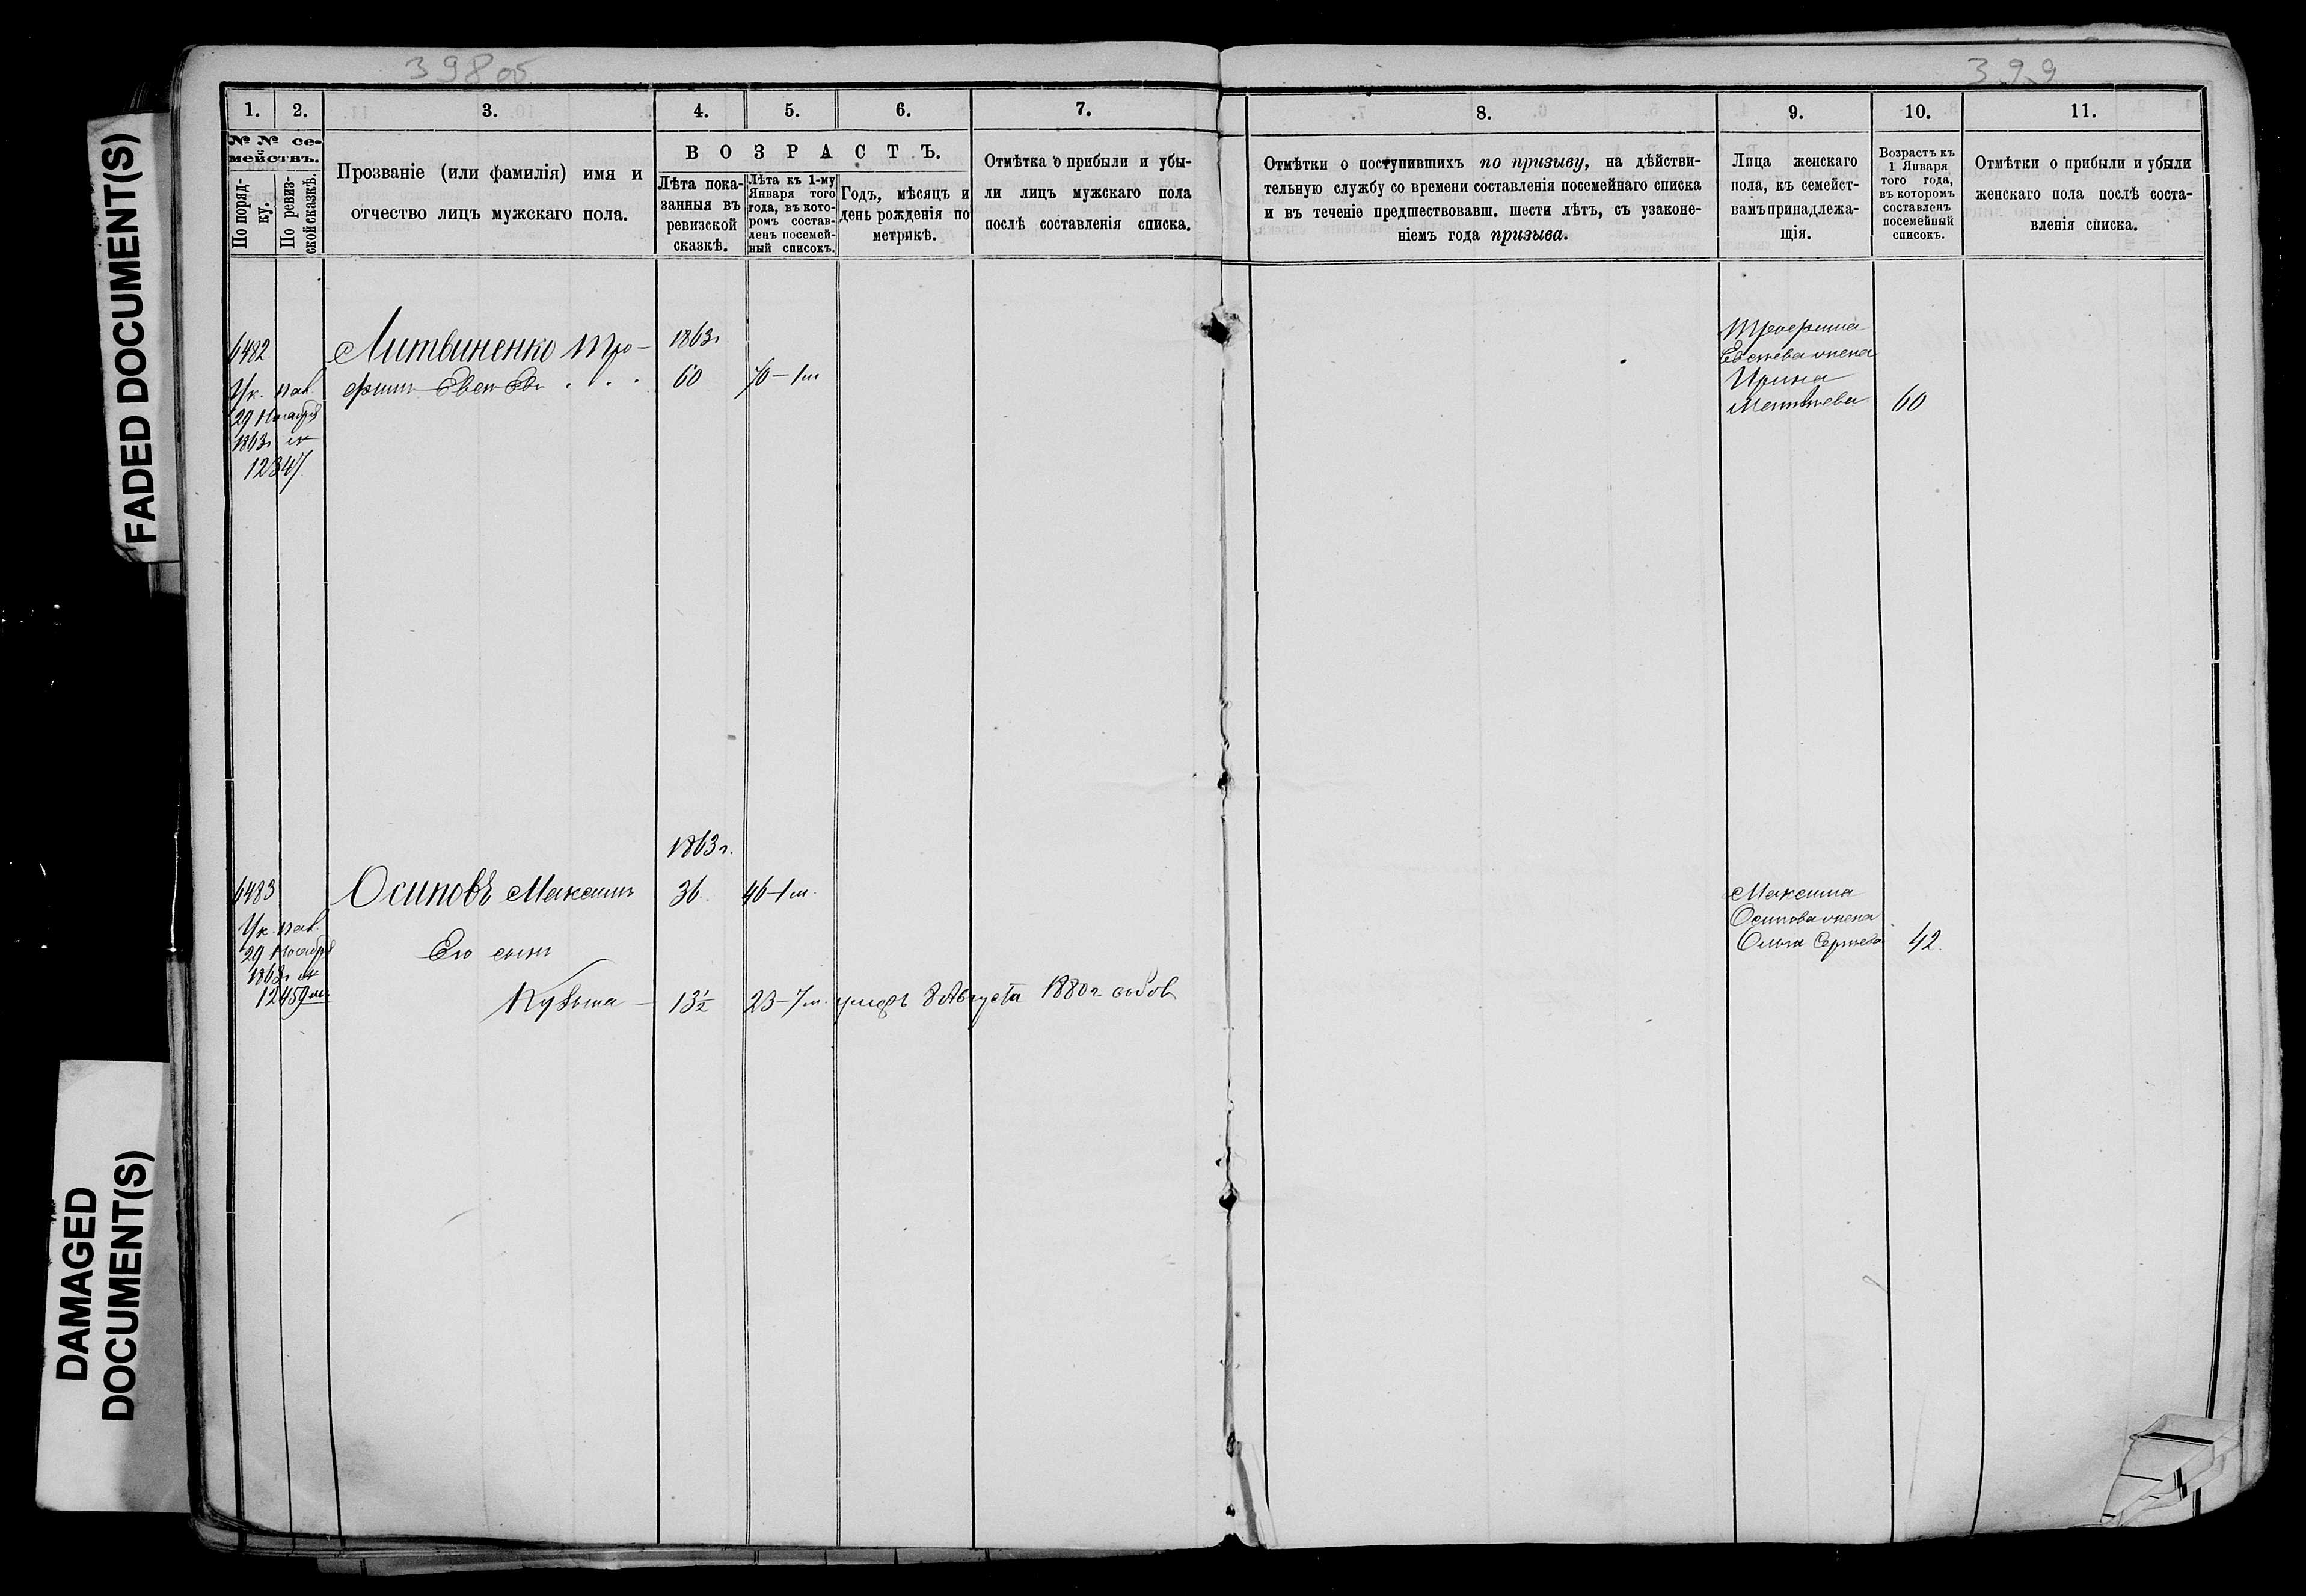 398 об
399
FADED DOCUMENT(S)
DAMAGED
DOCUMENT(S)
1.
2.
3.
4.
5.
6.
7.
8.
9.
10.
11.
№ № се-
мействъ.
По поряд-
ку.
По ревиз-
ской сказкѣ.
Прозваніе (или фамилія) имя и
отчество лицъ мужскаго пола.
ВОЗРАСТЪ.
Лѣта пока-
занныя въ
ревизской
сказкѣ.
Лѣта къ 1-му
Января того
года, въ кото-
ромъ состав-
ленъ посемей-
ный списокъ.
Годъ, мѣсяцъ и
день рожденія по
метрикѣ.
Отмѣтка о прибыли и убы-
ли лицъ мужскаго пола
послѣ составленія списка.
Отмѣтки о поступившихъ по призыву, на дѣйстви-
тельную службу со времени составленія посемейнаго списка
и въ теченіе предшествовавш. шести лѣтъ, съ узаконе-
ніемъ года призыва.
Лица женскаго
пола, къ семейст-
вамъ принадлежа-
щія.
Возрастъ къ
1 Января
того года,
въ которомъ
составленъ
посемейный
списокъ.
Отмѣтки о прибыли и убыли
женскаго пола послѣ соста-
вленія списка.
6482
Ук. пал
29 Ноября
1863г
12347
Литвиненко Тро-
фим
1863г
60
70-1м
Трофима
жена
Ирина
Матвѣева
60
1863г.
6483
Ук. пал.
29 Ноября
1863г
12459
Осиповъ Максимъ
36
46-1м.
Его сынъ
Кузьма
13½
23-7м.
умеръ 8 Августа 1880г
Максима
Осипова жена
Ольга Сергѣева
42.